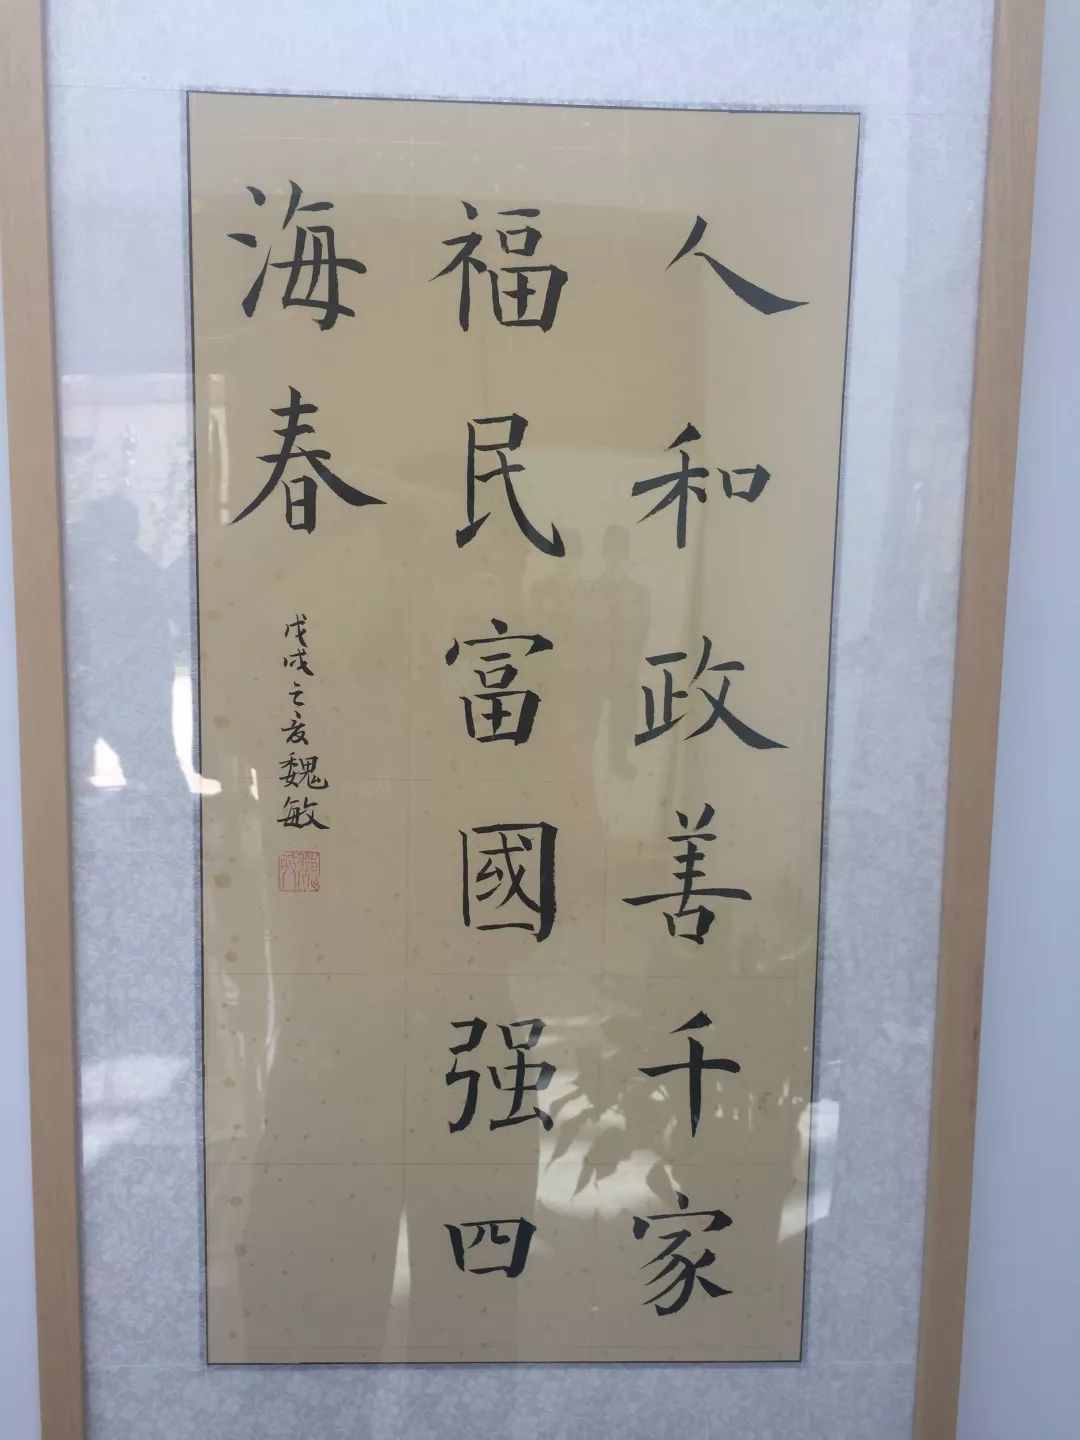 人和政善千家
福民富國强四
海春
戊戌之夏魏敏